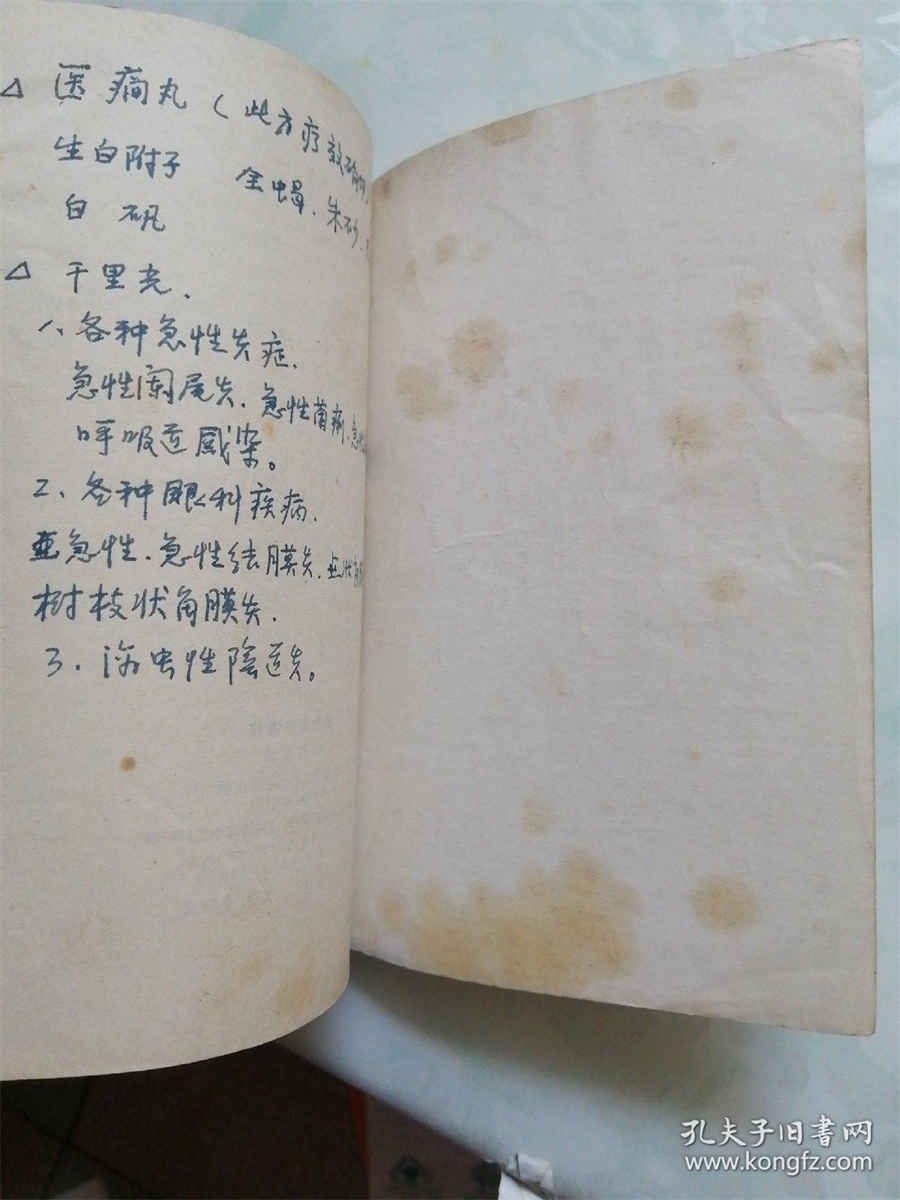 △ 医痫丸（此方疗效确
生白附子 全蝎、朱砂、
白矾
△ 千里光、
1、各种急性炎症、
急性阑尾炎、急性菌痢、急
呼吸道感染。
2、各种眼科疾病、
亚急性、急性结膜炎、
树枝状角膜炎、
3、滴虫性陰道炎。
孔夫子旧书网
www.kongfz.com